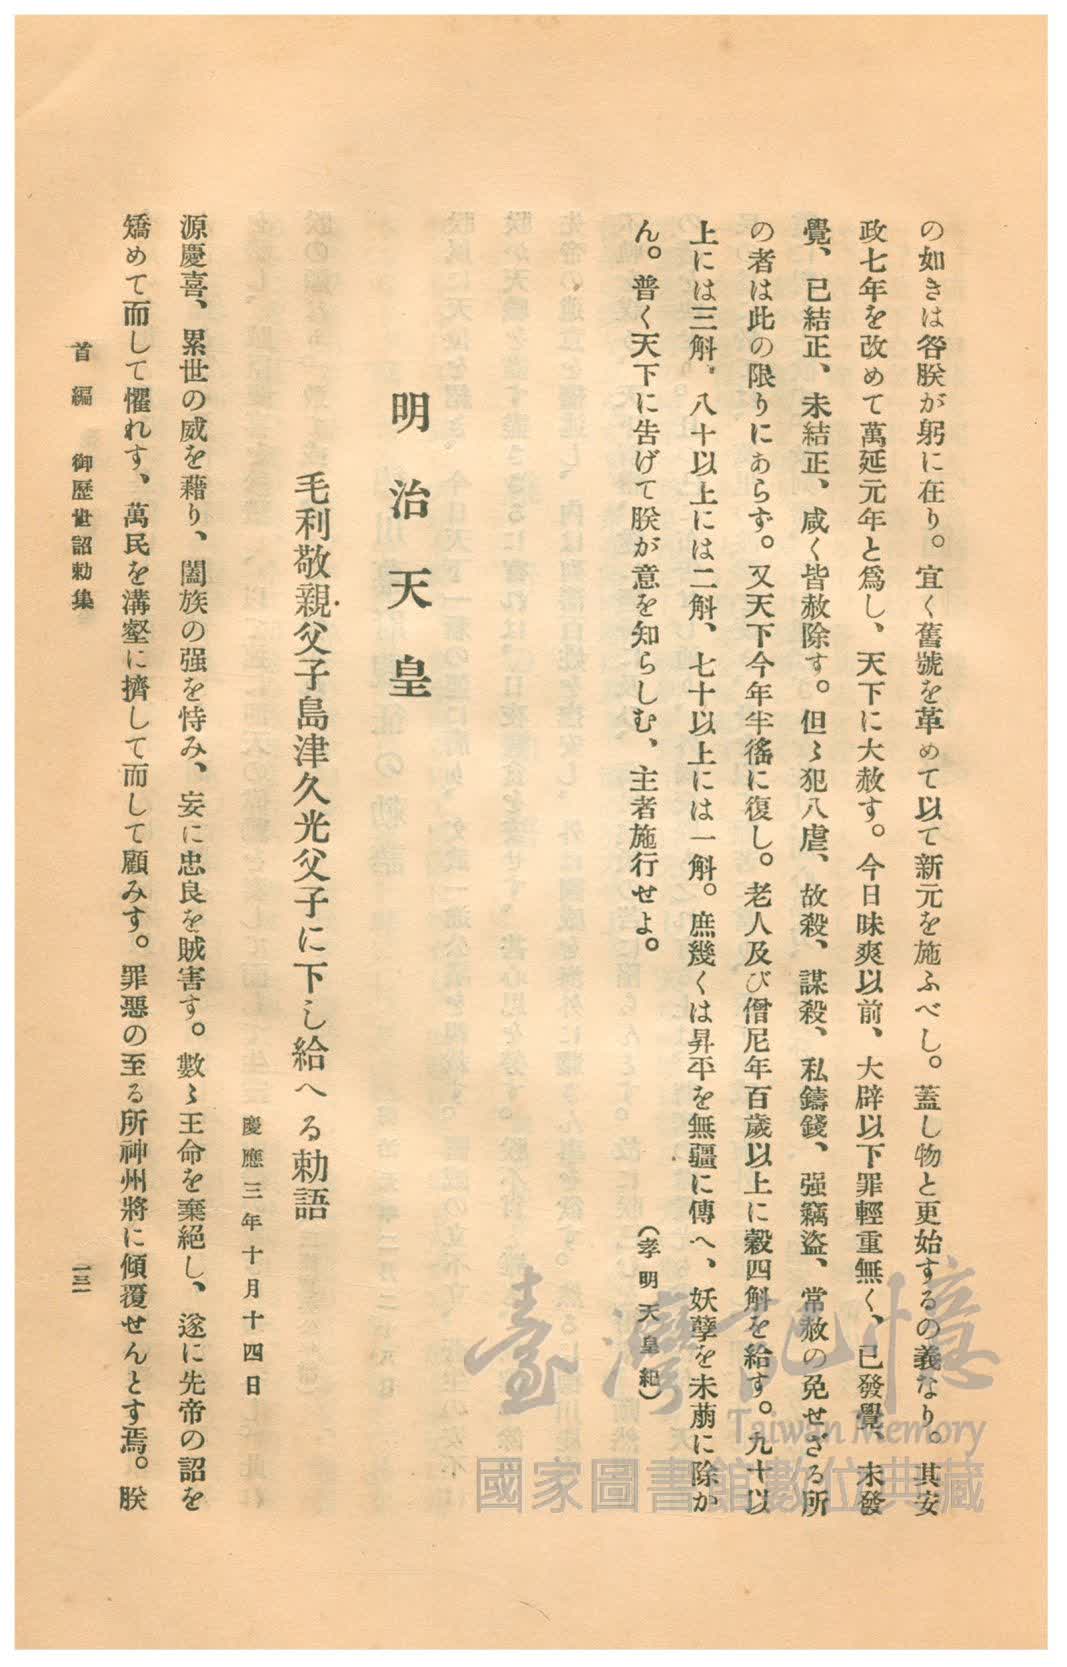 の如きは咎朕が躬に在り。宜く舊號を革めて以て新元を施ふべし。蓋し物と更始するの義なり。其安
政七年を改めて萬延元年と爲し、天下に大赦す。今日昧爽以前、大辟以下罪輕重無く、已發覺、未發
覺、已結正、未結正、咸く皆赦除す。但〻犯八虐、故殺、謀殺、私鑄錢、强竊盜、常赦の免せざる所
の者は此の限りにあらず。又天下今年半徭に復し。老人及び僧尼年百歲以上に穀四斛を給す。九十以
上には三斛、八十以上には二斛、七十以上には一斛。庶幾くは昇平を無疆に傳へ、妖孽を未萠に除か
ん。普く天下に告げて朕が意を知らしむ、主者施行せよ。
(孝明天皇紀)
明治天皇
毛利敬親父子島津久光父子に下し給へる勅語
慶應三年十月十四日
源慶喜、累世の威を藉り、闔族の强を恃み、妄に忠良を賊害す。數〻王命を棄絕し、遂に先帝の詔を
矯めて而して懼れす、萬民を溝壑に擠して而して顧みす。罪惡の至る所神州將に傾覆せんとす焉。朕
首編 御歷世詔勅集
一三一
臺灣記憶
Taiwan Memory
國家圖書館數位典藏